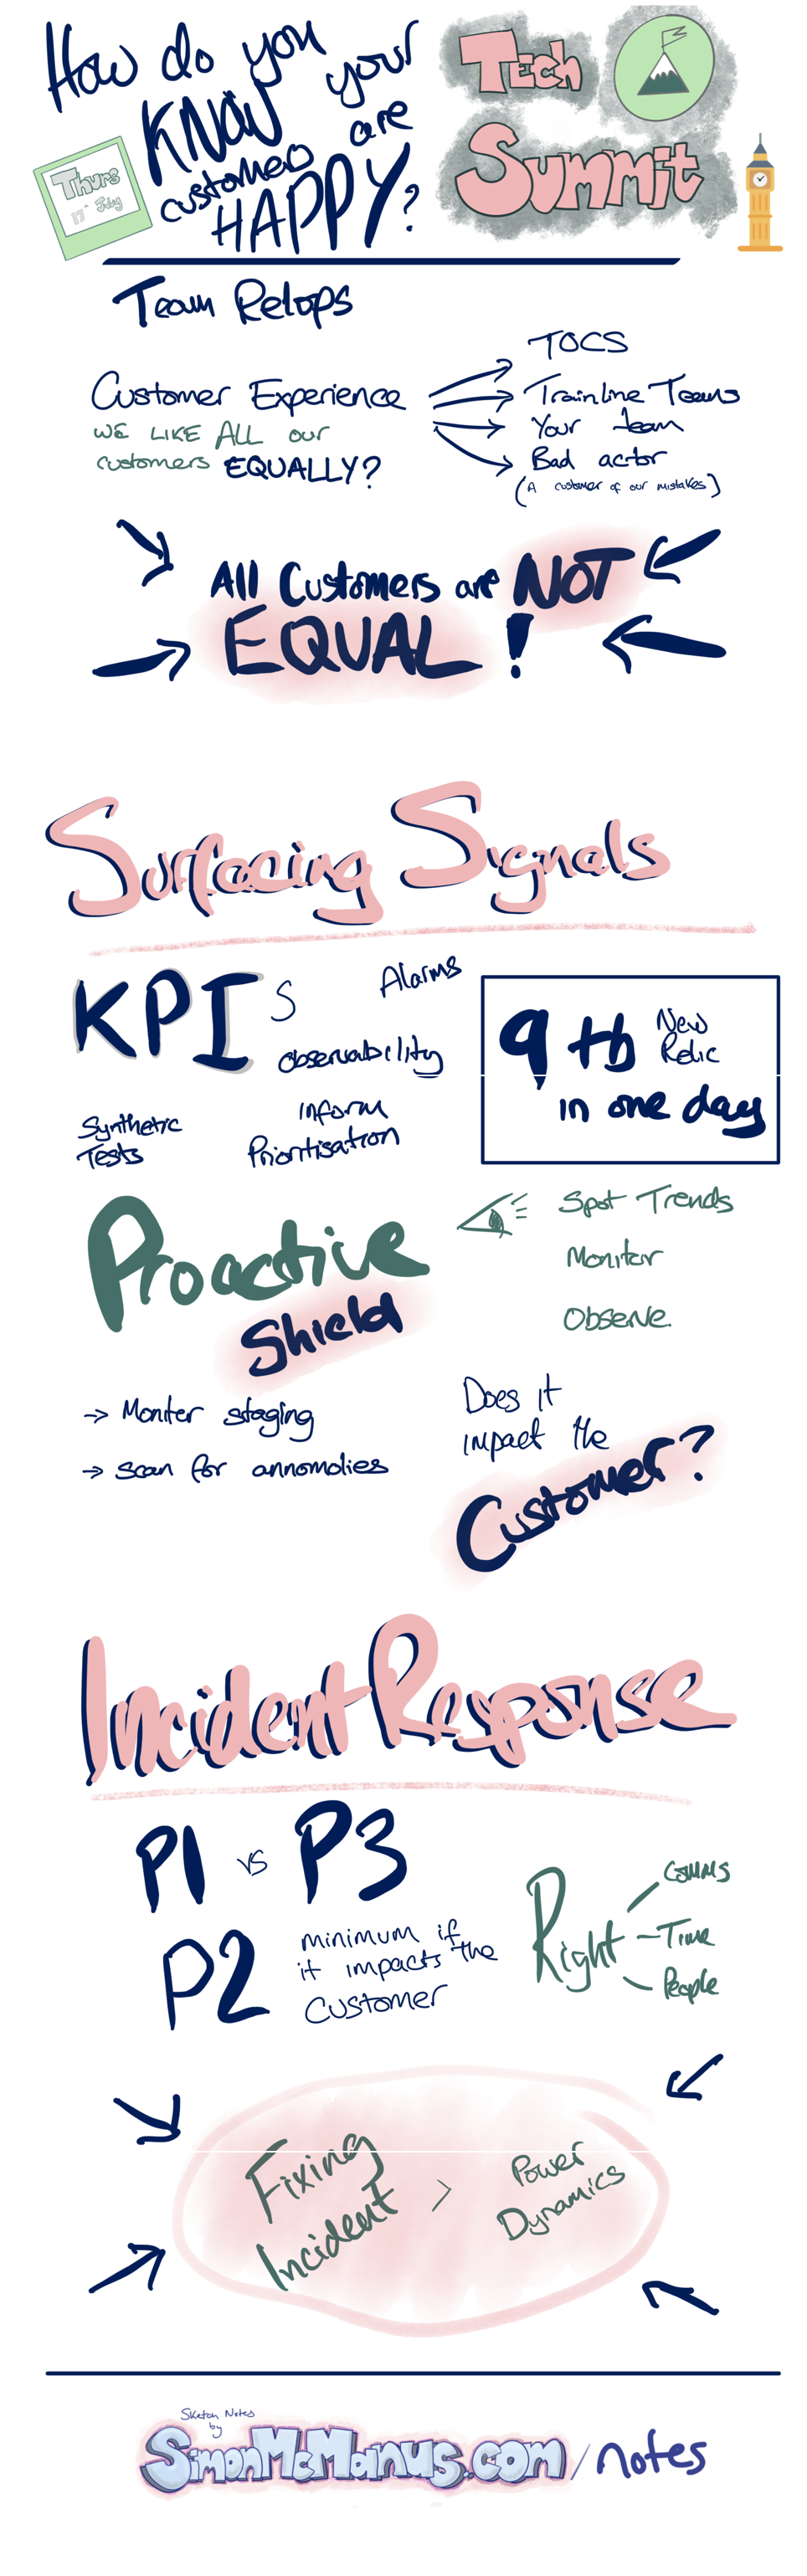 How do you
KNOW your
customers are
HAPPY?
Tech
Summit
Thurs
17th July
Team Relops
Customer Experience
WE LIKE ALL our
customers EQUALLY?
TOCS
Trainline Teams
Your team
Bad actor
(A customer of our mistakes)
All Customers are NOT
EQUAL!
Surfacing Signals
KPIs
Alarms
Observability
Synthetic
Tests
Inform
Prioritisation
9 tb New
Relic
in one day
Proactive
Shield
Spot Trends
Monitor
Observe
→ Moniter staging
→ scan for annomolies
Does it
impact the
Customer?
Incident Response
P1 vs P3
P2 minimum if
it impacts the
customer
Right
COMMS
Time
People
Fixing
Incident
>
Power
Dynamics
Sketch Notes
by
SimonMcManus.com/notes